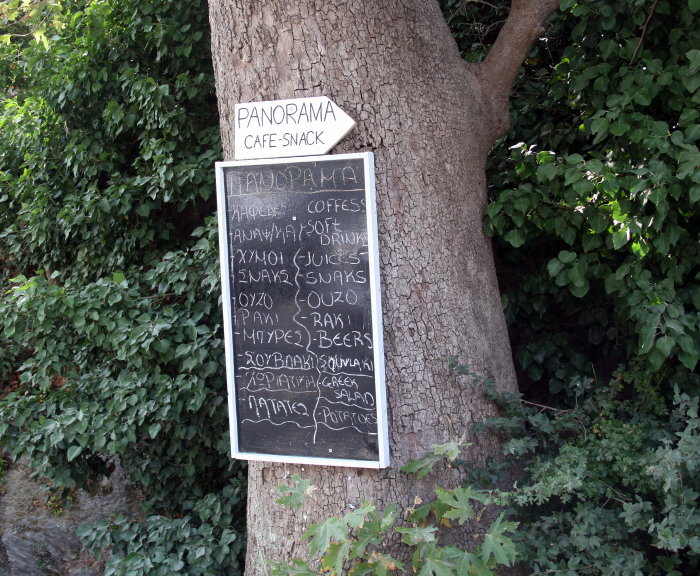 PANORAMA
CAFE-SNACK
ΠΑΝΟΡΑΜΑ
-ΚΑΦΕΔΕΣ - COFFESS
-ΑΝΑΨ/ΚΑ - SOFT DRINKS
-ΧΥΜΟΙ - JUICES
-ΣΝΑΚΣ - SNAKS
-ΟΥΖΟ - OUZO
-ΡΑΚΙ - RAKI
-ΜΠΥΡΕΣ - BEERS
-ΣΟΥΒΛΑΚΙ SOUVLAKI
-ΧΩΡΙΑΤΙΚΗ -GREEK SALAD
-ΠΑΤΑΤΕΣ -POTATOES